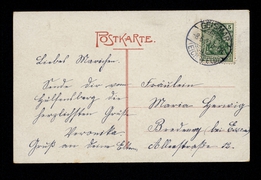 POSTKARTE.
Liebes Mariechen.
Sende dir vom
Hülfensberg die
herzlichsten Grüße
Veronika
Gruß an deine Eltern
Fräulein
Maria Herwig
Allerstraße 13.